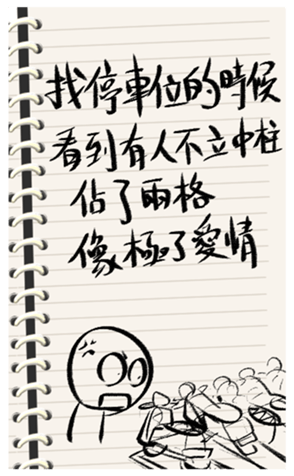 找停車位的時候
看到有人不立中柱
佔了兩格
像極了愛情